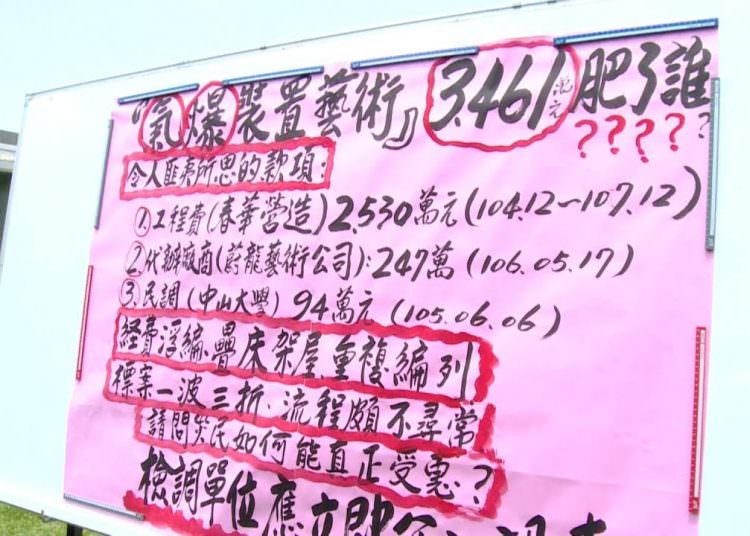 『氣爆裝置藝術』3.461萬元肥了誰?????
令人匪夷所思的款項:
1.工程費(春華營造)2,530萬元(104.12~107.12)
2.代辦廠商(蔚龍藝術公司):247萬(106.05.17)
3.民調(中山大學)94萬元(105.06.06)
経費浮編、疊床架屋重複編列
標案一波三折、流程頗不尋常
請問災民如何能真正受惠?
檢調單位應立即